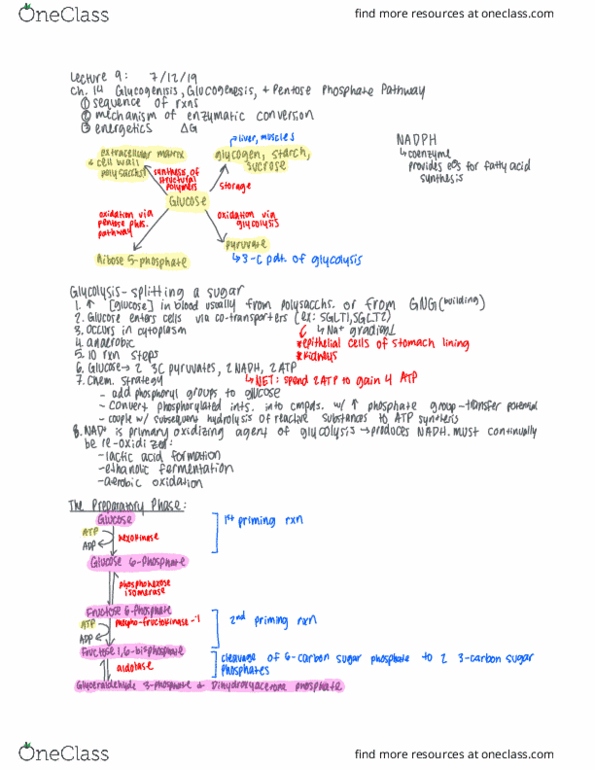 OneClass
find more resources at oneclass.com
Lecture 9: 7/12/19
Ch. 14 Glycogenisis, Glucogenesis, + Pentose Phosphate Pathway
① sequence of rxns
② mechanism of enzymatic conversion
③ energetics ΔG
→ liver, muscles
extracellular matrix
+ cell wall
polysacchs
synthesis of
structural
polymers
glycogen, starch,
sucrose
storage
NADPH
↳ coenzyme
provides e⊖s for fatty acid
synthesis
Glucose
oxidation via
pentose phos.
pathway
oxidation via
glycolysis
Ribose 5-phosphate
pyruvate
↳ 3-C pdt. of glycolysis
Glycolysis - splitting a sugar
1. ↑ [glucose] in blood usually from polysacchs. or from GNG (building)
2. Glucose enters cells via co-transporters (ex: SGLT1, SGLT2)
3. occurs in cytoplasm
↳ Na+ gradient
4. anaerobic
*epithelial cells of stomach lining
5. 10 rxn steps
*kidneys
6. Glucose → 2 3C pyruvates, 2 NADH, 2 ATP
7. Chem. strategy
↳ NET: spend 2 ATP to gain 4 ATP
- add phosphoryl groups to glucose
- convert phosphorylated ints. into cmpds. w/ ↑ phosphate group-transfer potential
- couple w/ subsequent hydrolysis of reactive substances to ATP synthesis
8. NAD+ is primary oxidizing agent of glycolysis → produces NADH. must continually
be re-oxidized:
- lactic acid formation
- ethanolic fermentation
- aerobic oxidation
The Preparatory Phase:
Glucose
1st priming rxn
ATP
hexokinase
ADP
Glucose 6-Phosphate
phosphohexose
isomerase
Fructose 6-Phosphate
ATP
phospho-fructokinase-1
2nd priming rxn
ADP
Fructose 1,6-bisphosphate
aldolase
cleavage of 6-carbon sugar phosphate to 2 3-carbon sugar
phosphates
Glyceraldehyde 3-phosphate + Dihydroxyacetone phosphate
OneClass
find more resources at oneclass.com